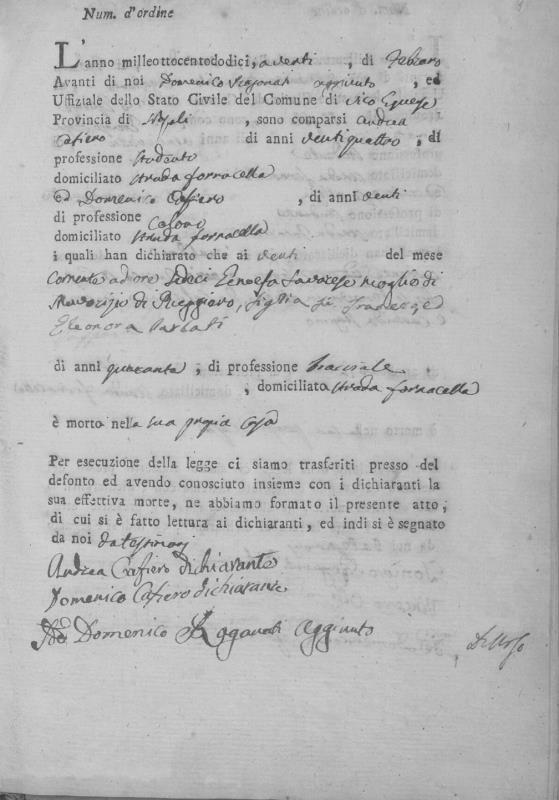 Num. d'ordine
L'anno milleottocentododici, a venti , di Febraro
Avanti di noi Domenico aggiunto , ed
Uffiziale dello Stato Civile del Comune di Vico Equese
Provincia di Napoli , sono comparsi Andrea
Cafiero di anni ventiquattro , di
professione
domiciliato strada fornacella
ed Domenico Cafiero , di anni venti
di professione
domiciliato strada fornacella
i quali han dichiarato che ai venti del mese
corrente ad ore sedici Savarese moglie di
Maurizio di , figlia di
Eleonora
di anni quaranta , di professione
, domiciliato strada fornacella
è morto nella sua propia casa
Per esecuzione della legge ci siamo trasferiti presso del
defonto ed avendo conosciuto insieme con i dichiaranti la
sua effettiva morte, ne abbiamo formato il presente atto,
di cui si è fatto lettura ai dichiaranti, ed indi si è segnato
da noi da testimonj
Andrea Cafiero dichiarante
Domenico Cafiero dichiarante
Domenico aggiunto